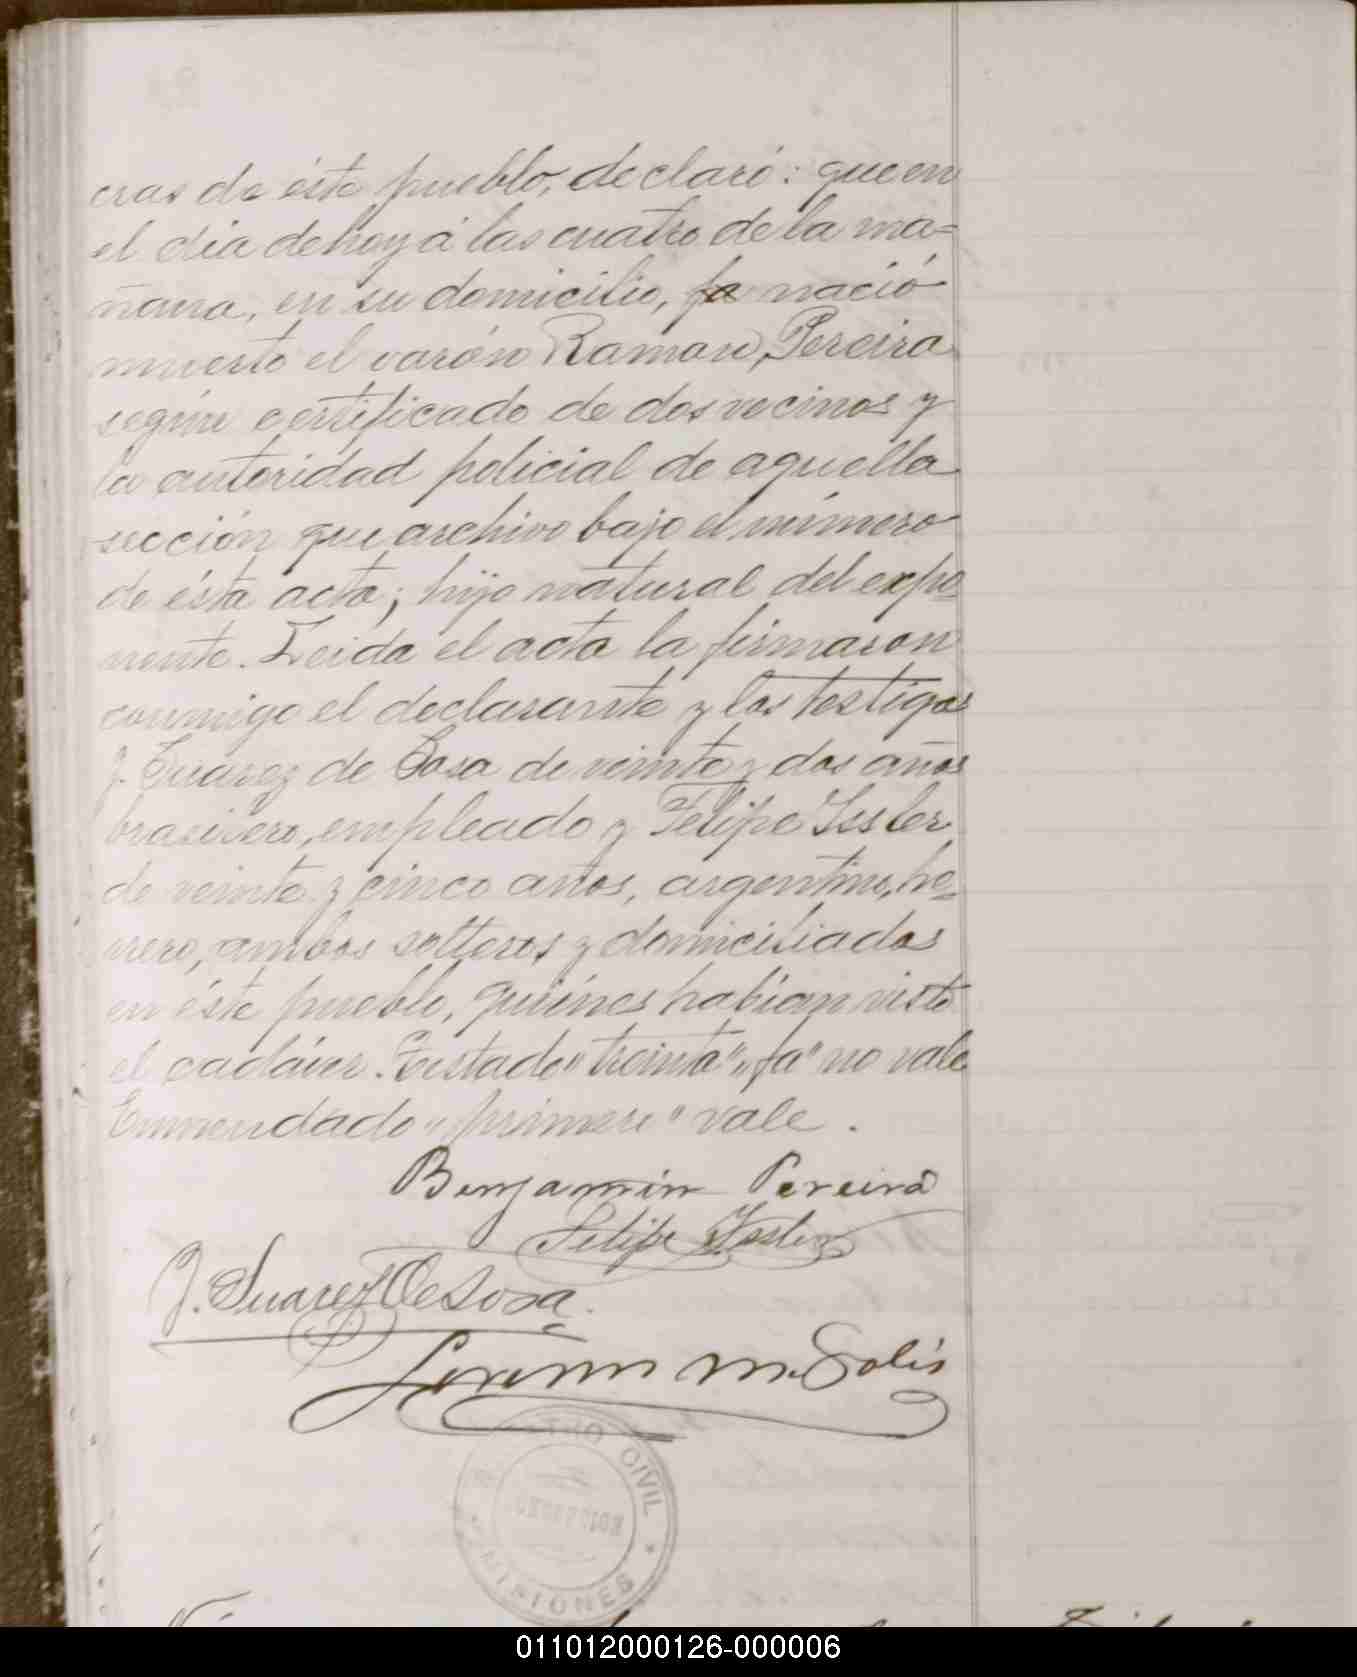 cras de éste pueblo, declaró: que en
el dia de hoy á las cuatro de la ma=
ñana, en su domicilio, fa nació
muerto el varón Ramon Pereira
según certificado de dos vecinos y
la autoridad policial de aquella
sección que archivo bajo el número
de ésta acta; hijo natural del expo=
nente. Leida el acta la firmaron
conmigo el declarante y los testigos
J. Suarez de Sosa de veinte y dos años
brasilero, empleado y Felipe Issler
de veinte y cinco años, argentino, he=
rrero, ambos solteros y domiciliados
en éste pueblo, quiénes habian visto
el cadáver. Testado "treinta" "fa" no vale
Enmendado "primero" vale.
Benjamin Pereira
Felipe Issler
J. Suarez De Sosa.
M. Solis
CIVIL
MISIONES
011012000126-000006